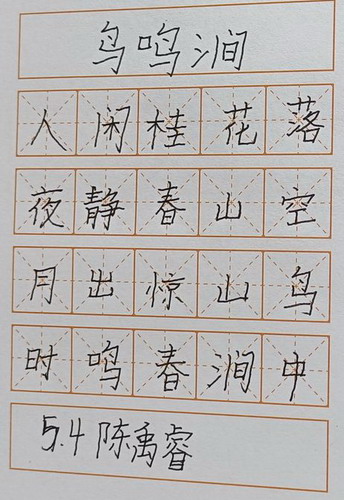 鸟鸣涧
人闲桂花落
夜静春山空
月出惊山鸟
时鸣春涧中
5.4 陈禹睿